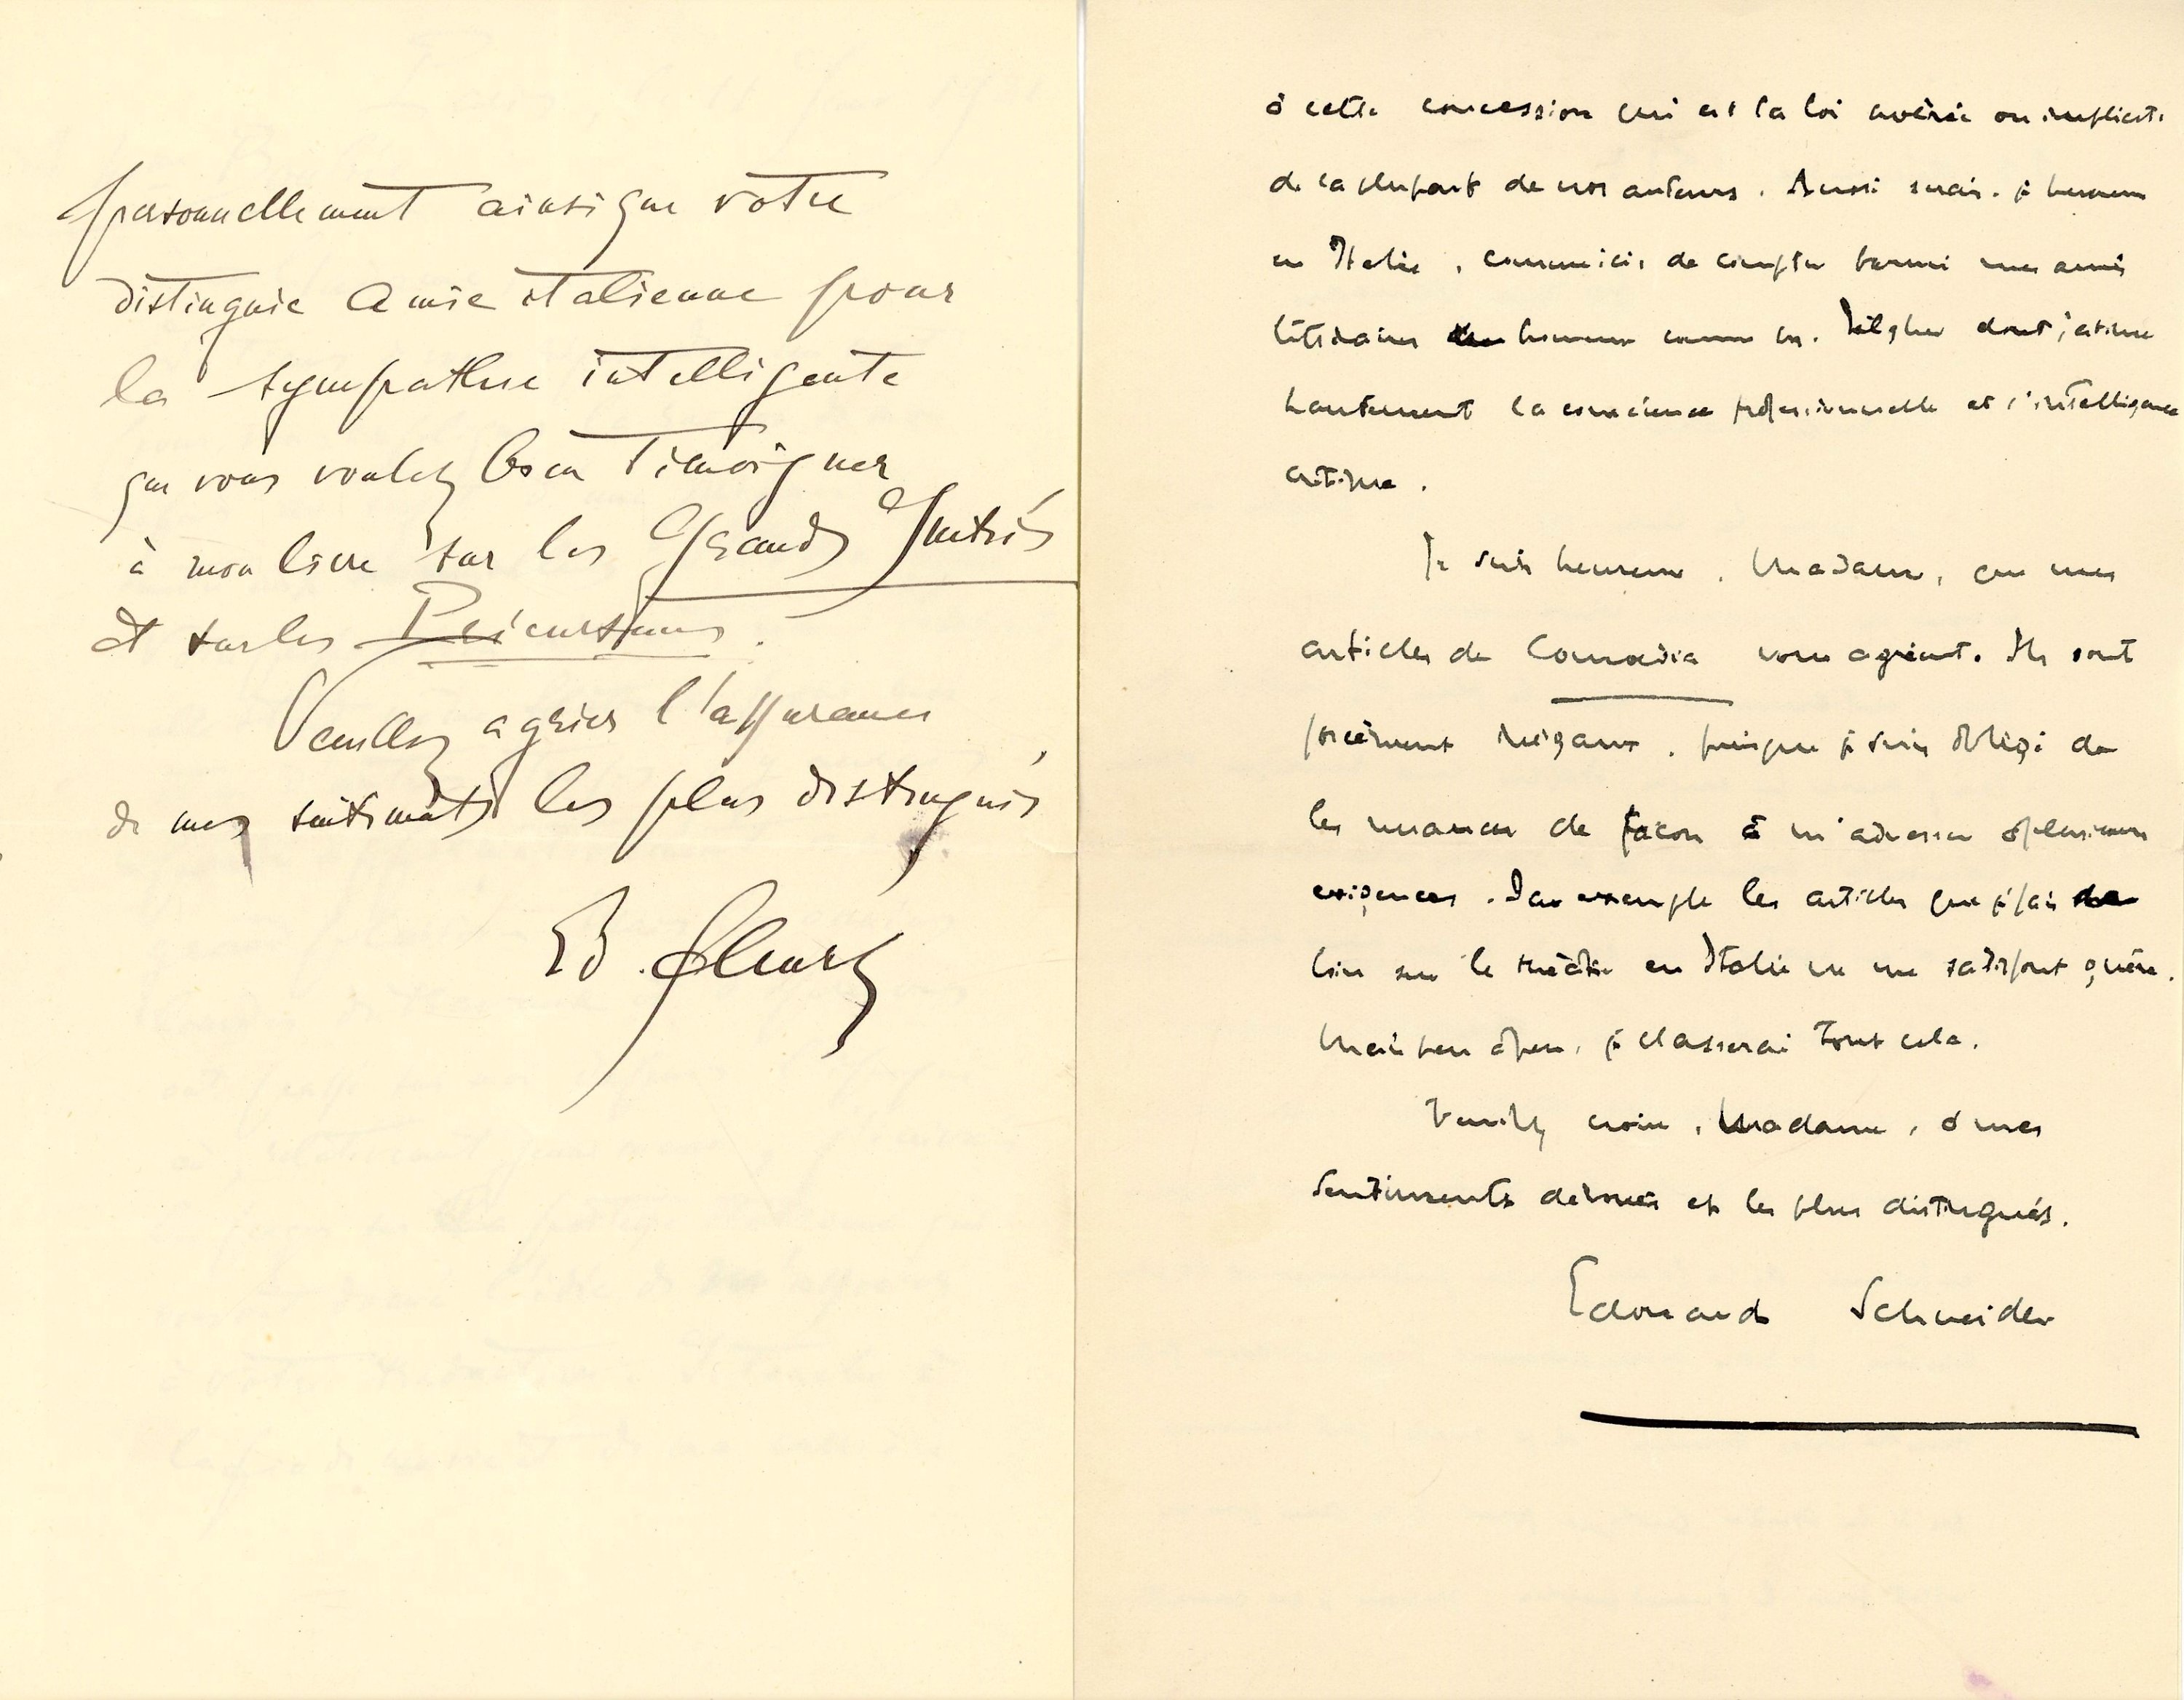 personnellement ainsi que votre
distinguée Amie italienne pour
la sympathie intelligente
que vous voulez bien témoigner
à mon livre sur les Grands Initiés
et sur les Précurseurs.
Veuillez agréer l'assurance
de mes sentiments les plus distingués
à cette concession qui est la loi avérée ou implicite
de la plupart de nos auteurs. Aussi suis-je heureux
en Italie, comme ici, de compter parmi mes amis
littéraires hommes comme M. Tilgher dont j'estime
hautement la conscience professionnelle et l'intelligence
critique.
Je suis heureux, Madame, que mes
articles de Comœdia vous agréent. Ils sont
forcément inégaux, puisque je suis obligé de
les nuancer de façon à m'adresser à plusieurs
exigences. Par exemple les articles que j'ai
lieu sur le théâtre en Italie ne me satisfont guère.
Mais peu à peu, je classerai tout cela.
Veuillez croire, Madame, à mes
sentiments dévoués et les plus distingués.
Edouard Schneider